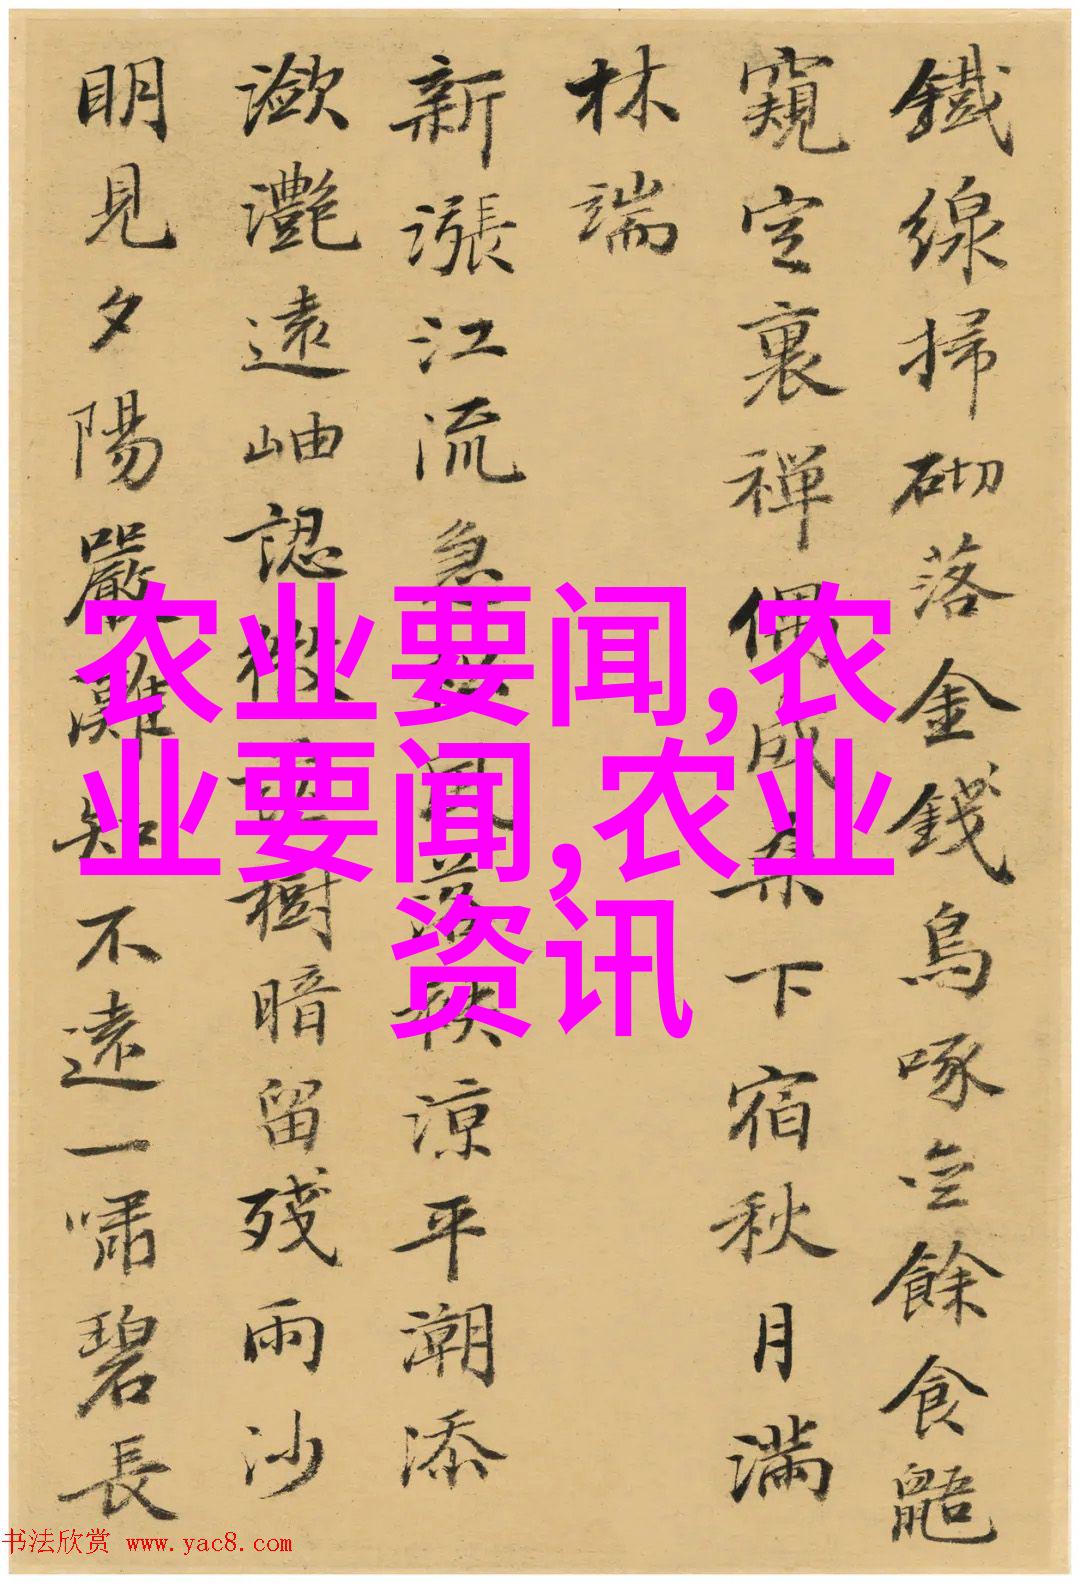 鐵線掃砌落金錢烏啄無餘食鼯
窺定裏禪偶成桑下宿秋月滿
林端
新漲江流急 落 涼平潮添
瀲灩遠岫認微 樹暗留殘雨沙
明見夕陽嚴灘知不遠一嘯碧長
农业要闻,农
业要闻,农业
资讯
书法欣赏 www.yac8.com